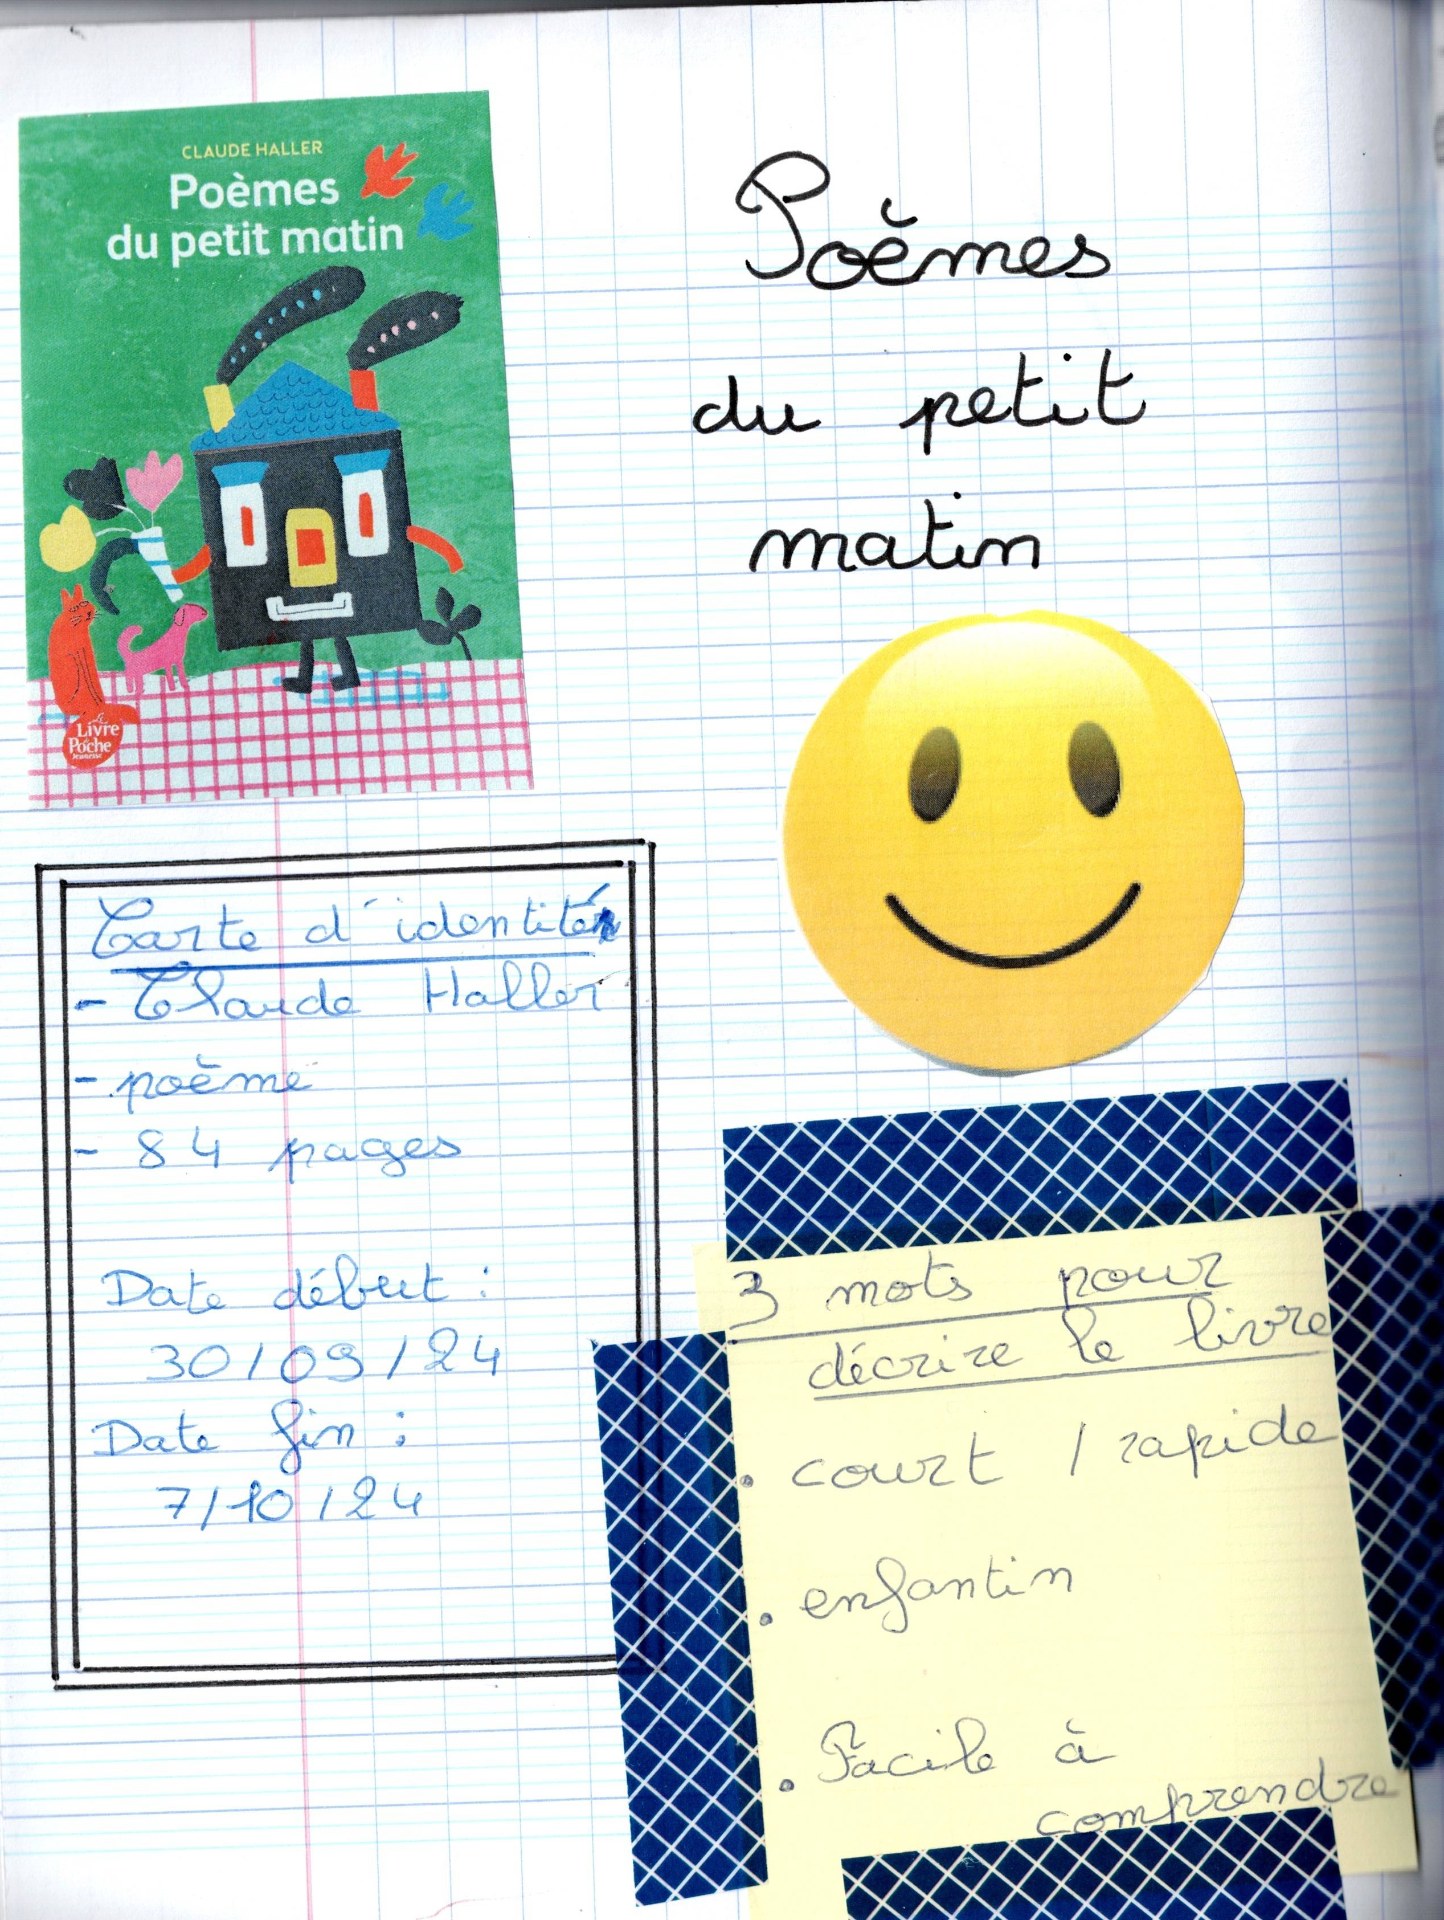 CLAUDE HALLER
Poèmes
du petit matin
le
Livre
de
Poche
Jeunesse
Poèmes
du petit
matin
Carte d'identité
- Claude Haller
- poème
- 84 pages
Date début :
30/09/24
Date fin :
7/10/24
3 mots pour
décrire le livre
. court / rapide
. enfantin
. Facile à
comprendre